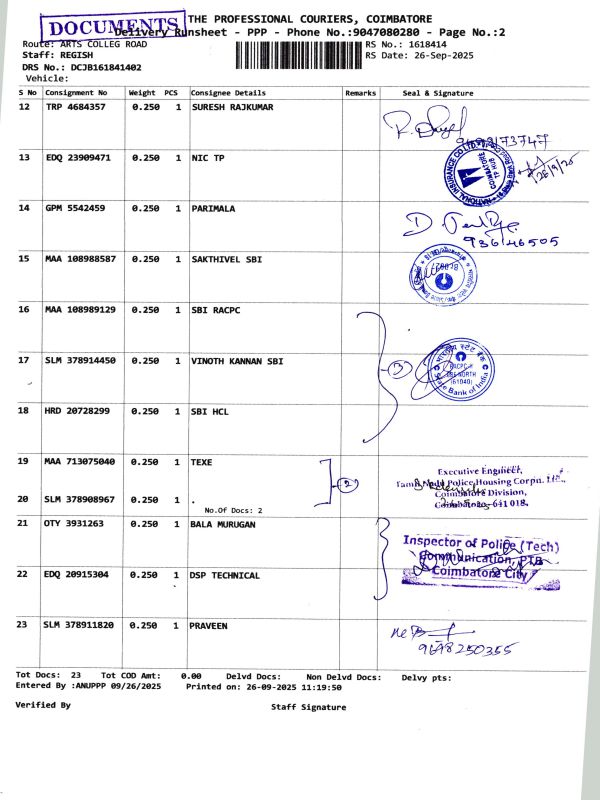 DOCUMENTS
THE PROFESSIONAL COURIERS, COIMBATORE
Delivery Runsheet - PPP - Phone No.:9047080280 - Page No.:2
Route: ARTS COLLEG ROAD
RS No.: 1618414
Staff: REGISH
RS Date: 26-Sep-2025
DRS No.: DCJB161841402
Vehicle:
S No Consignment No Weight PCS Consignee Details Remarks Seal & Signature
12 TRP 4684357 0.250 1 SURESH RAJKUMAR
13 EDQ 23909471 0.250 1 NIC TP
NATIONAL INSURANCE CO LTD
COIMBATORE
TP HUB
14 GPM 5542459 0.250 1 PARIMALA
15 MAA 108988587 0.250 1 SAKTHIVEL SBI
16 MAA 108989129 0.250 1 SBI RACPC
17 SLM 378914450 0.250 1 VINOTH KANNAN SBI
3
भारतीय स्टेट बैंक
RACPC-II
CBE-NORTH
(61040)
State Bank of India
18 HRD 20728299 0.250 1 SBI HCL
19 MAA 713075040 0.250 1 TEXE
2
Executive Engineer,
Tamil Nadu Police Housing Corpn. Ltd.,
Coimbatore Division,
Coimbatore-641 018.
20 SLM 378908967 0.250 1 .
No.Of Docs: 2
21 OTY 3931263 0.250 1 BALA MURUGAN
Inspector of Police (Tech)
Communication, PTB
Coimbatore City
22 EDQ 20915304 0.250 1 DSP TECHNICAL
23 SLM 378911820 0.250 1 PRAVEEN
9678250355
Tot Docs: 23 Tot COD Amt: 0.00 Delvd Docs: Non Delvd Docs: Delvy pts:
Entered By :ANUPPP 09/26/2025 Printed on: 26-09-2025 11:19:50
Verified By
Staff Signature